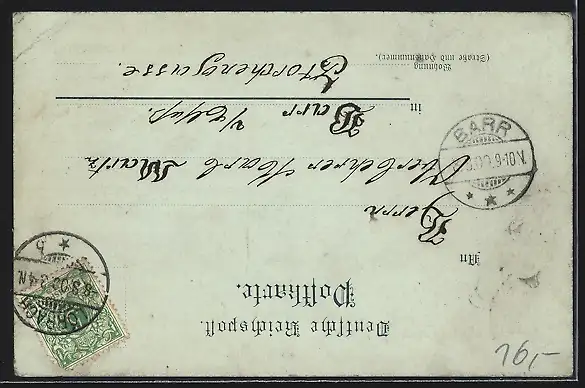 Deutsche Reichspost.
Postkarte.
An
Herrn
Oberlehrer Karl Martz
in Barr i/Elsass.
Storchengasse.
Wohnung
(Straße und Hausnummer).
BARR
9-10V.
16,-